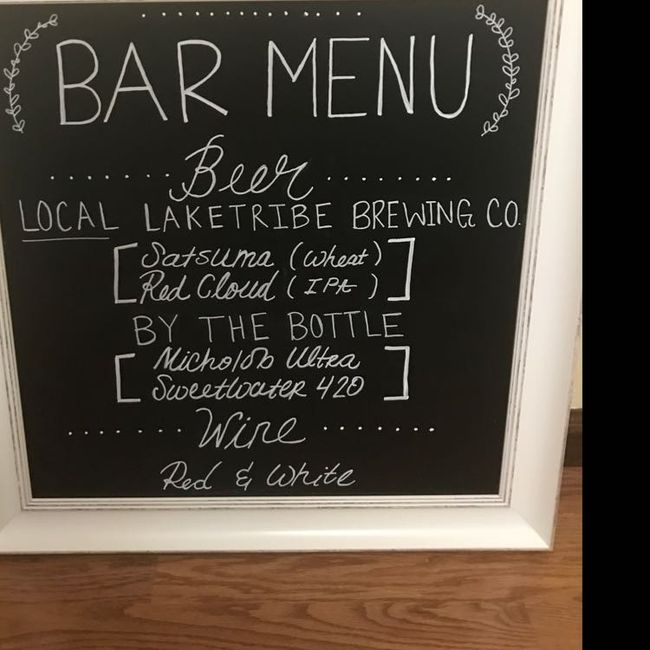 BAR MENU
Beer
LOCAL LAKETRIBE BREWING CO.
[Satsuma (wheat)
Red Cloud (IPA)]
BY THE BOTTLE
[Micholob Ultra
Sweetwater 420]
Wine
Red & White